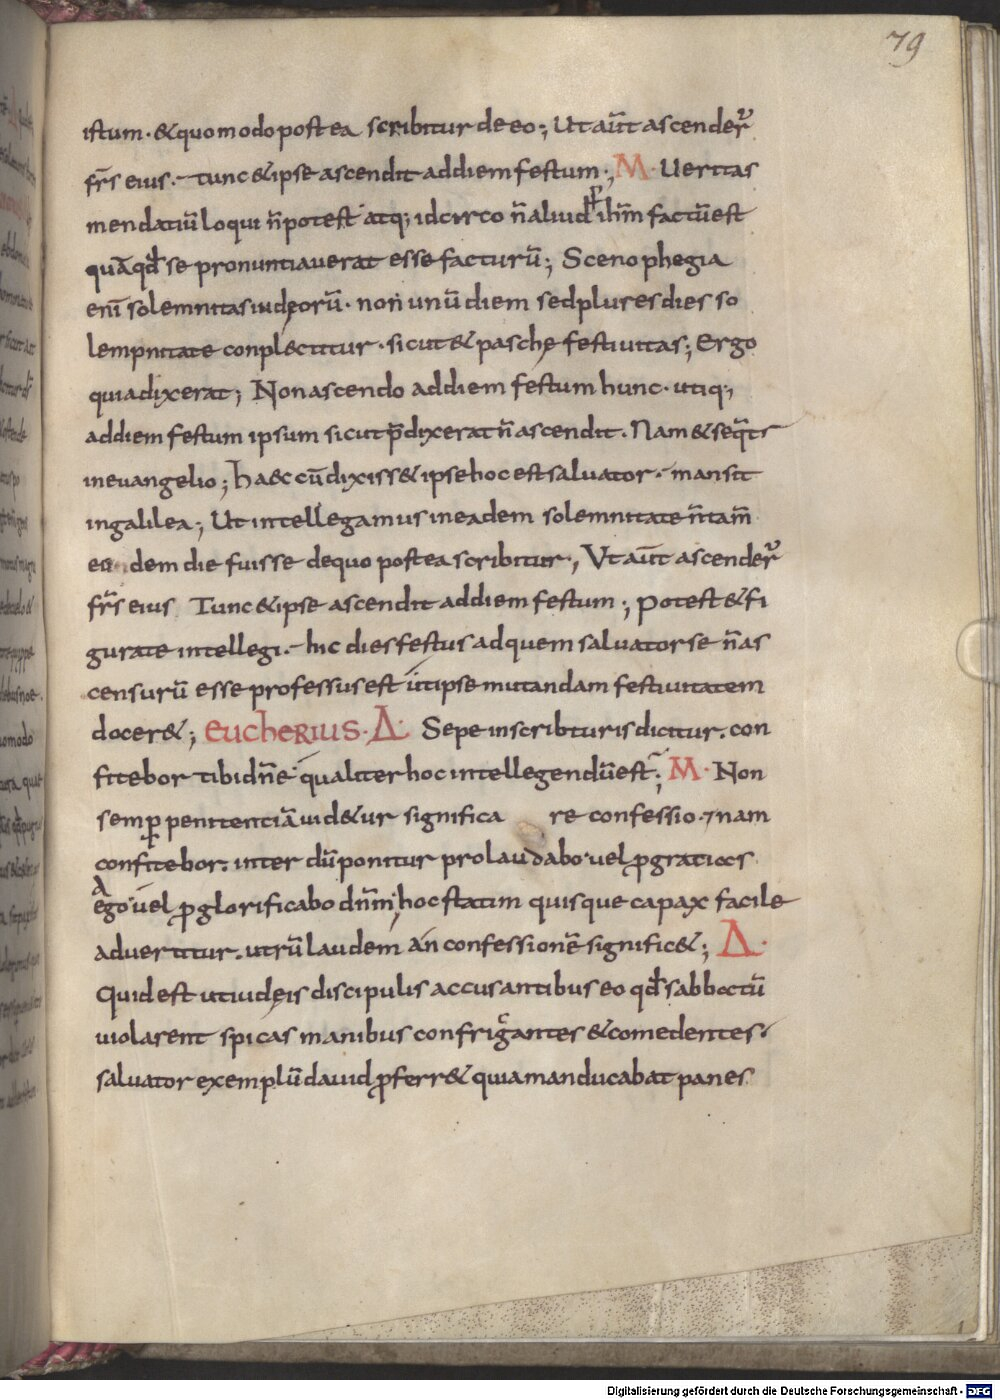 79
istum · & quomodo postea scribitur de eo ; Ut aut̄ ascender̄
fr̄s eius · tunc & ipse ascendit ad diem festum ; M · Ueritas
mendatiū loqui n̄ potest atq; idcirco n̄ aliud p ih̄m factū est
quā qđ se pronuntiauerat esse facturū ; Scenophegia
enī solemnitas iudęorū · non unū diem sed plures dies so
lempnitate conplectitur · sicut & paschę festiuitas ; Ergo
quia dixerat ; Non ascendo ad diem festum hunc · utiq;
ad diem festum ipsum sicut p̄dixerat n̄ ascendit · Nam & seq̄tr
in euangelio ; Haec cū dixiss& ipse hoc est saluator · mansit
in galilea ; Ut intellegamus in eadem solemnitate n̄ tam̄
ea dem die fuisse de quo postea scribitur ; Vt aut̄ ascender̄
fr̄s eius Tunc & ipse ascendit ad diem festum ; Potest & fi
gurate intellegi · hic dies festus ad quem saluator se n̄ as
censurū esse professus est ut ipse mutandam festiuitatem
docer& ; EUCHERIUS · Δ · Sepe in scribturis dicitur . con
fitebor tibi dn̄e qualiter hoc intellegendū est ; M · Non
semꝑ penitentiā uid&ur significa re confessio · nam
confitebor · inter dū ponitur pro laudabo uel ꝓ gratias
Ago uel ꝓ glorificabo dn̄m ; hoc statim quisque capax facile
aduertitur . utrū laudem an confessionē signific& ; Δ ·
Quid est ut iudęis discipulis accusantibus eo qđ sabbatū
uiolarent spicas manibus confrigantes & comedentes ·
saluator exemplū dauid ꝓferr& quia manducabat panes
Digitalisierung gefördert durch die Deutsche Forschungsgemeinschaft - DFG